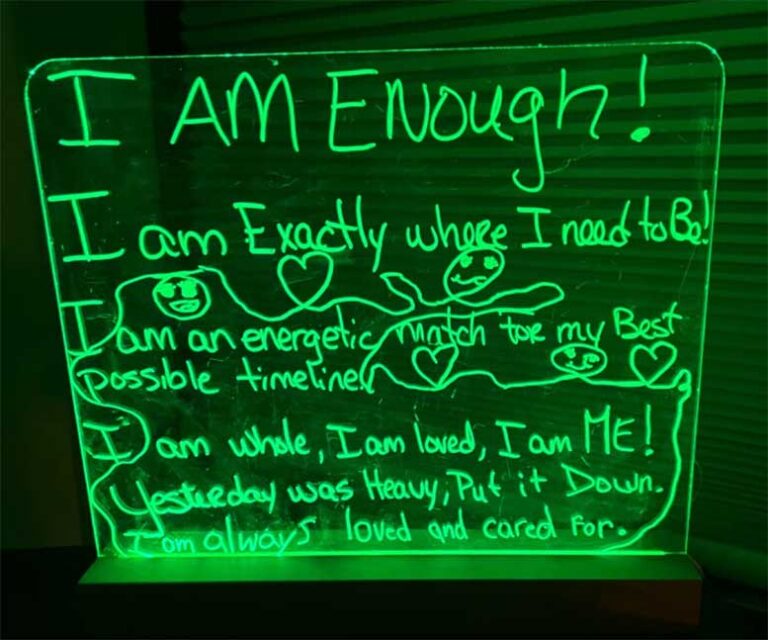 I AM ENough!
I am Exactly where I need to Be!
I am an energetic match for my Best
possible timeline!
I am whole, I am loved, I am ME!
Yesterday was Heavy, Put it Down.
I am always loved and cared for.